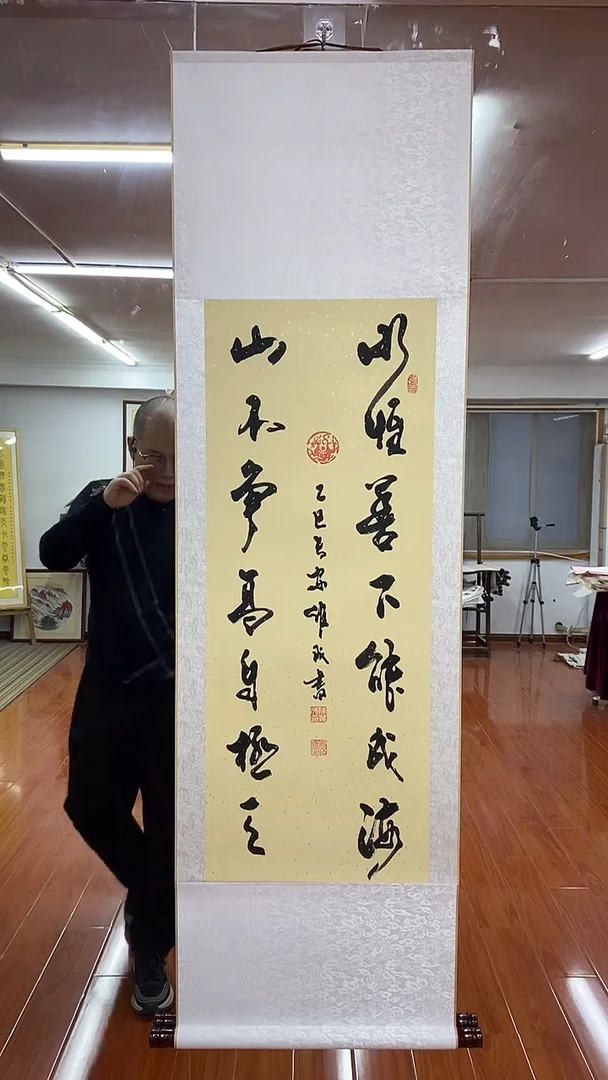 水惟善下能成海
山不争高自極天
乙巳长安雄書